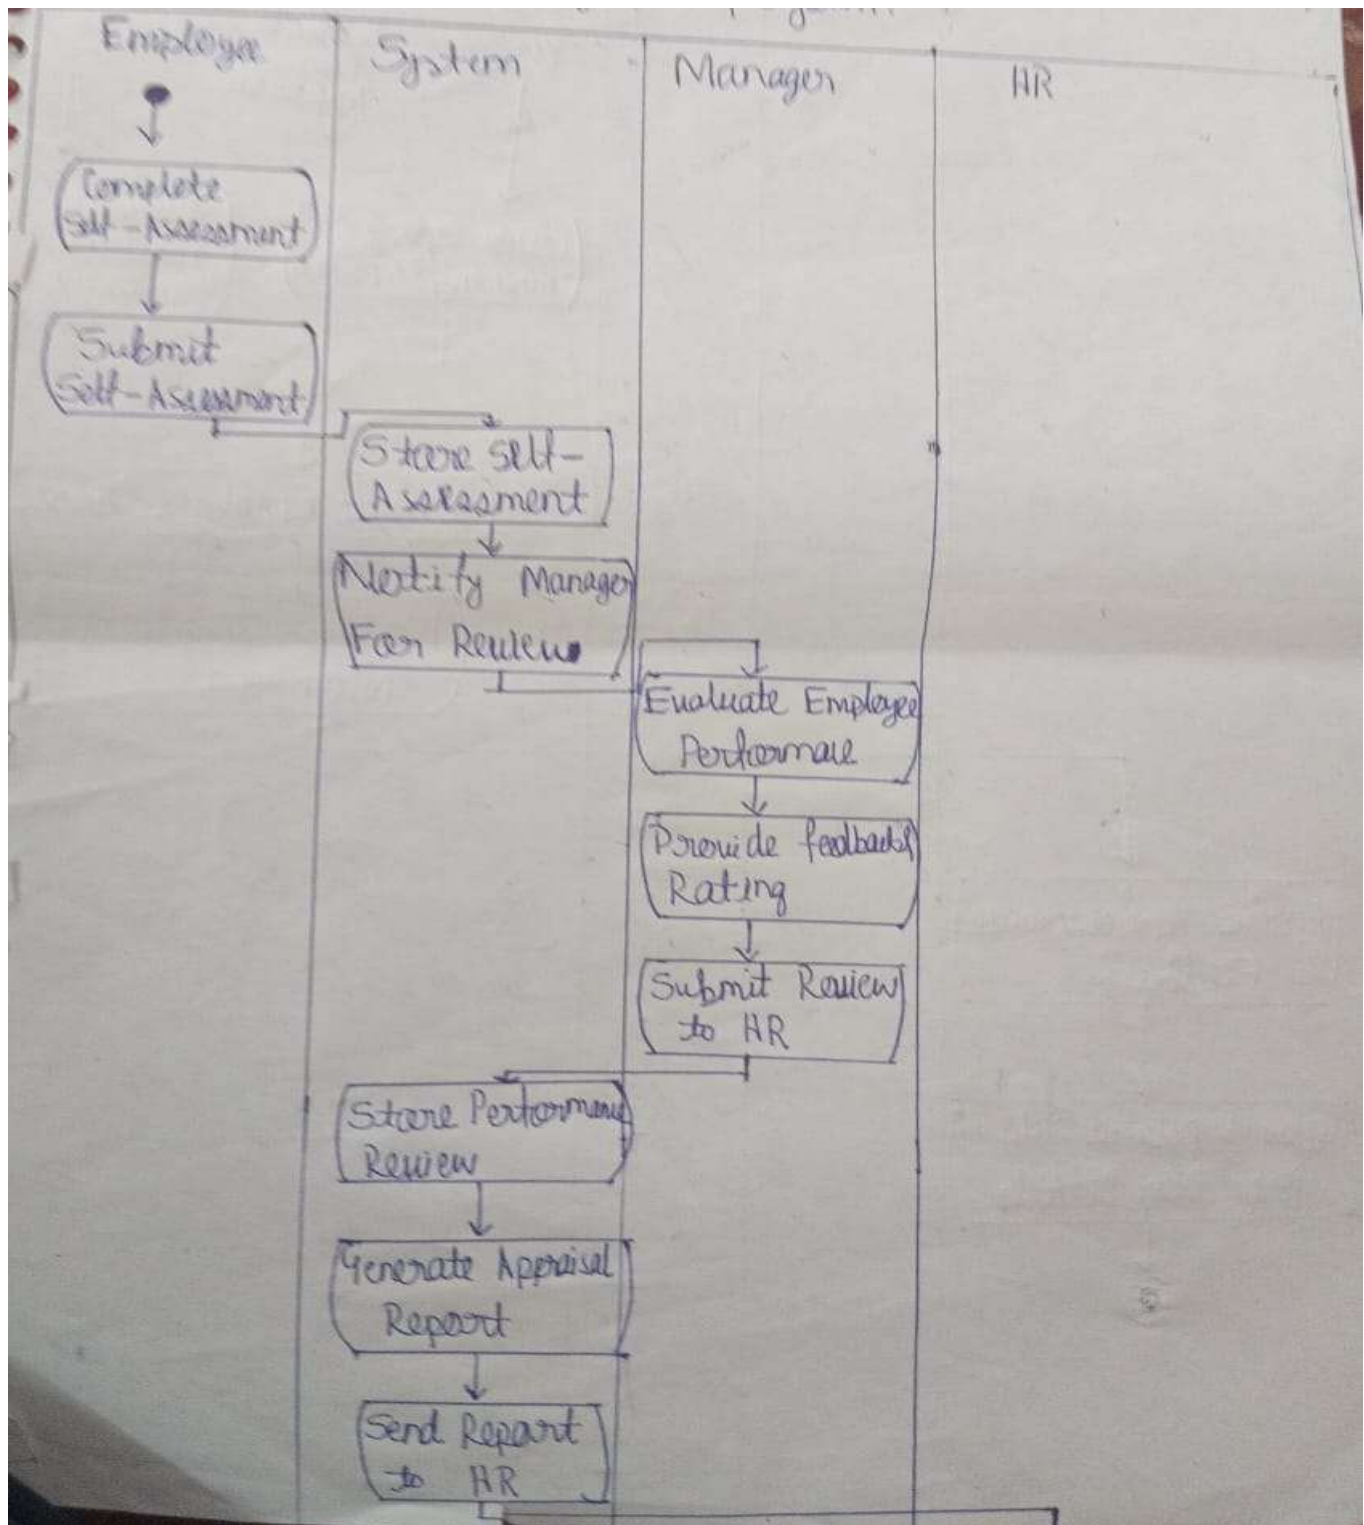 Employee
System
Manager
HR
Complete
Self-Assessment
Submit
Self-Assessment
Store Self-
Assessment
Notify Manager
For Review
Evaluate Employee
Performance
Provide feedback &
Rating
Submit Review
to HR
Store Performance
Review
Generate Appraisal
Report
Send Report
to HR